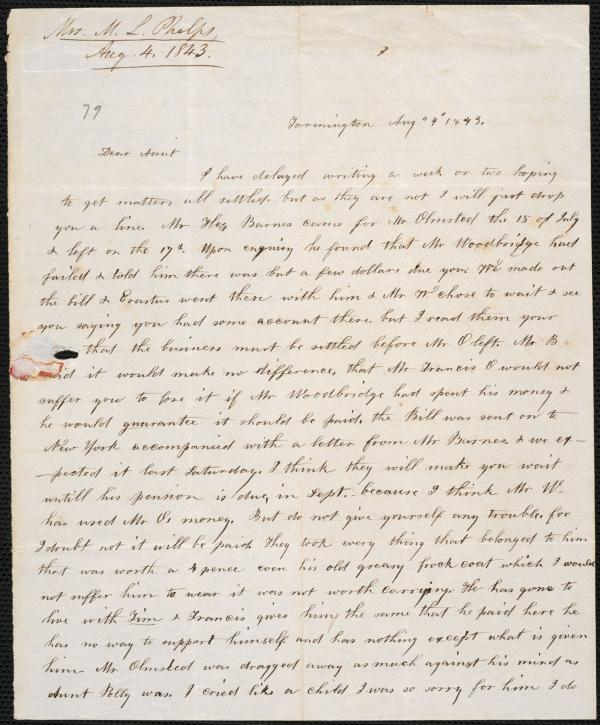 Mrs. M. L. Phelps,
Aug. 4. 1843.
79
Farmington Aug " 4" 1843.
Dear Aunt
I have delayed writing a week or two hoping
to get matters all settled. but as they are not I will just drop
you a line. Mr Barnes came for Mr Olmsted the 15 of July
& left on the 17th. Upon enquiry he found that Mr Woodbridge had
failed & told him there was but a few dollars due you. We made out
the bill & Erastus went there with him & Mr W chose to wait & see
you saying you had some account there. but I read them your
that the business must be settled before Mr O left. Mr B.
said it would make no difference, that Mr Francis O would not
suffer you to lose it if Mr Woodbridge had spent his money &
he would guarantee it should be paid, the Bill was sent on to
New York accompanied with a letter from Mr Barnes & we ex-
-pected it last Saturday. I think they will make you wait
untill his pension is due, in Sept. because I think Mr W-
has used Mr Os money. But do not give yourself any trouble, for
I doubt not it will be paid. They took every thing that belonged to him
that was worth a 4 pence even his old greasy frock coat which I would
not suffer him to wear it was not worth carrying. He has gone to
live with Tim & Francis gives him the same that he paid here he
has no way to support himself and has nothing except what is given
him. Mr Olmsted was dragged away as much against his mind as
Aunt Polly was. I cried like a child I was so sorry for him I do